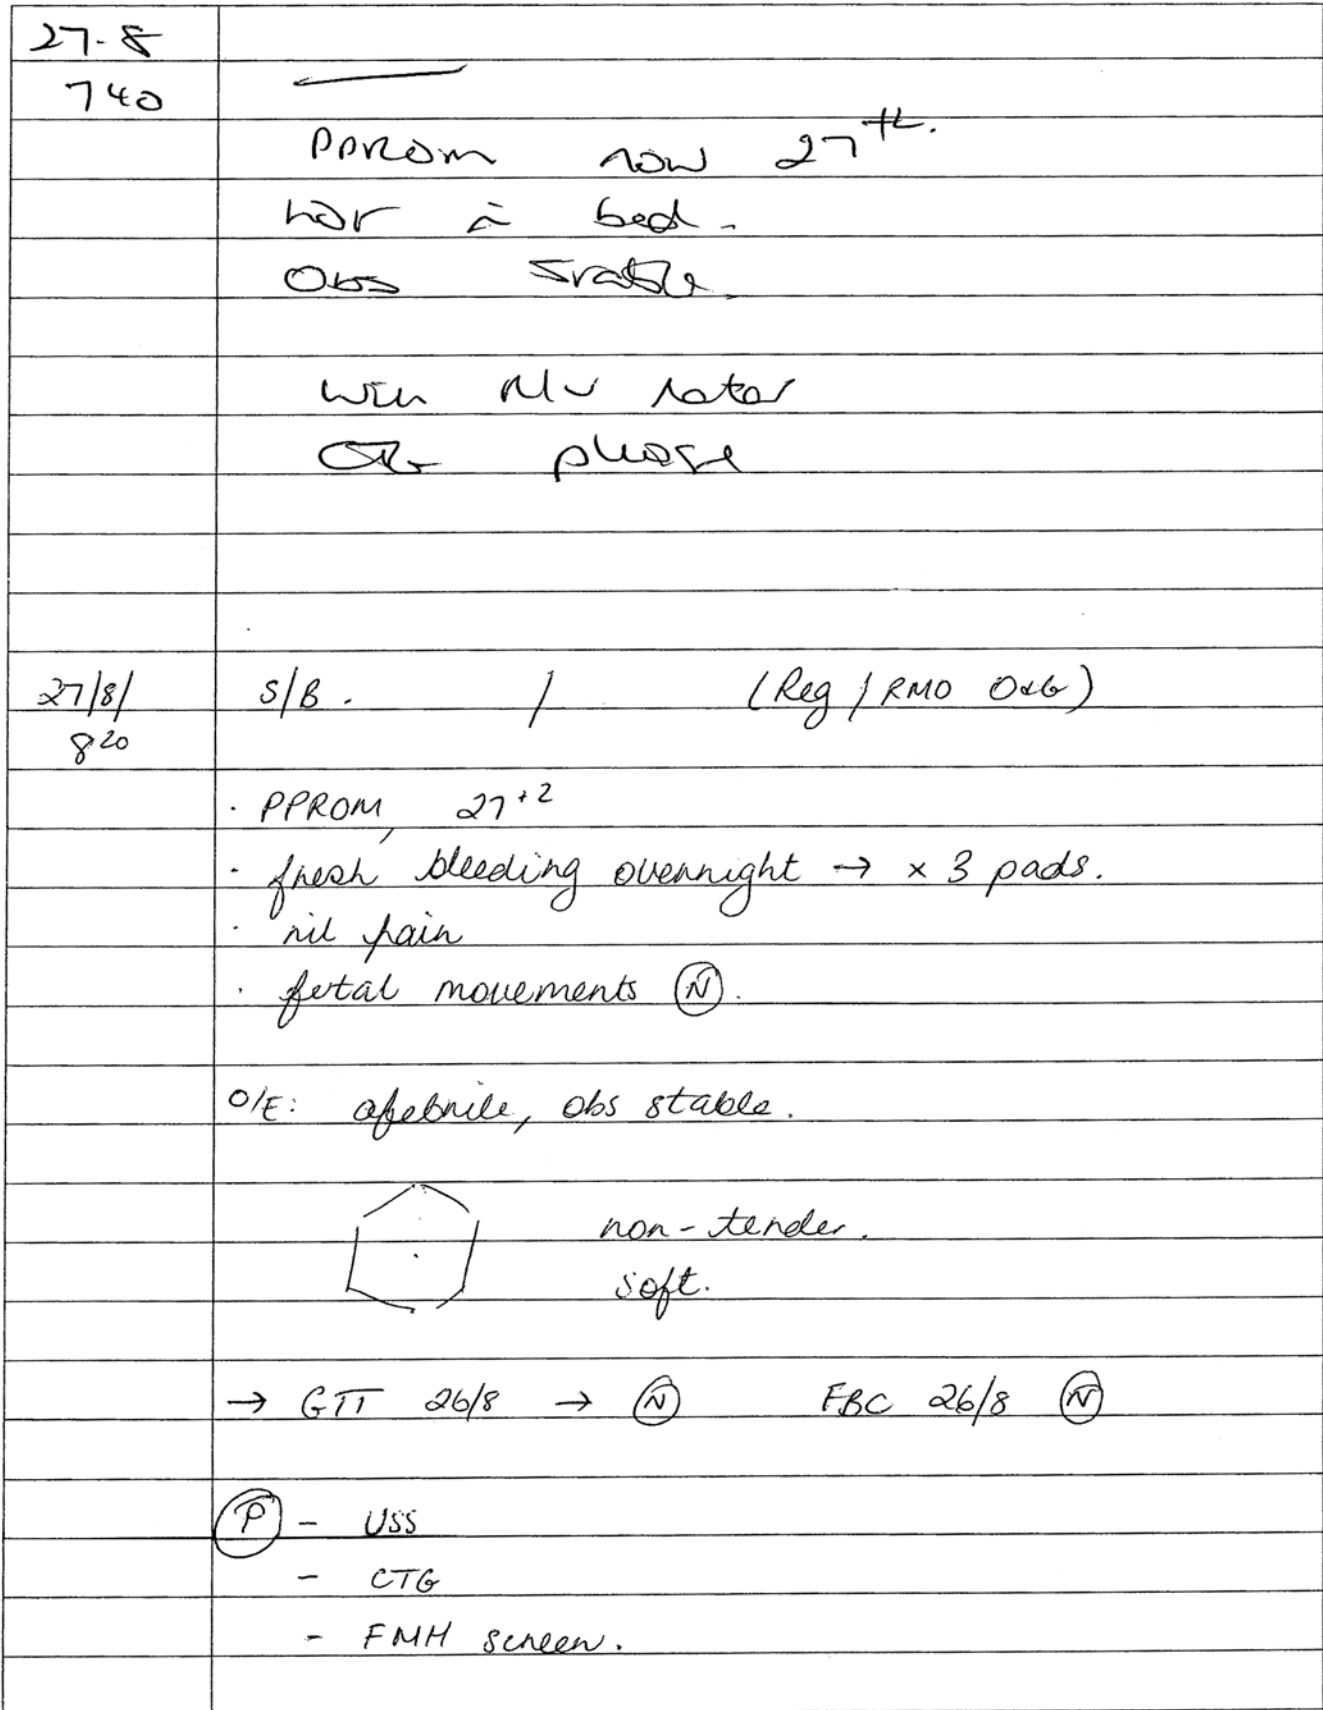 27-8
740
PPROM now 27+2.
not in bed.
Obs stable.
Will r/v later
CTG please
27/8/ S/B. / (Reg / RMO O&G)
8 20
· PPROM, 27+2
· fresh bleeding overnight → x 3 pads.
· nil pain
· fetal movements (N).
O/E: afebrile, obs stable.
non-tender.
soft.
→ GTT 26/8 → (N) FBC 26/8 (N)
(P) - USS
- CTG
- FMH screen.